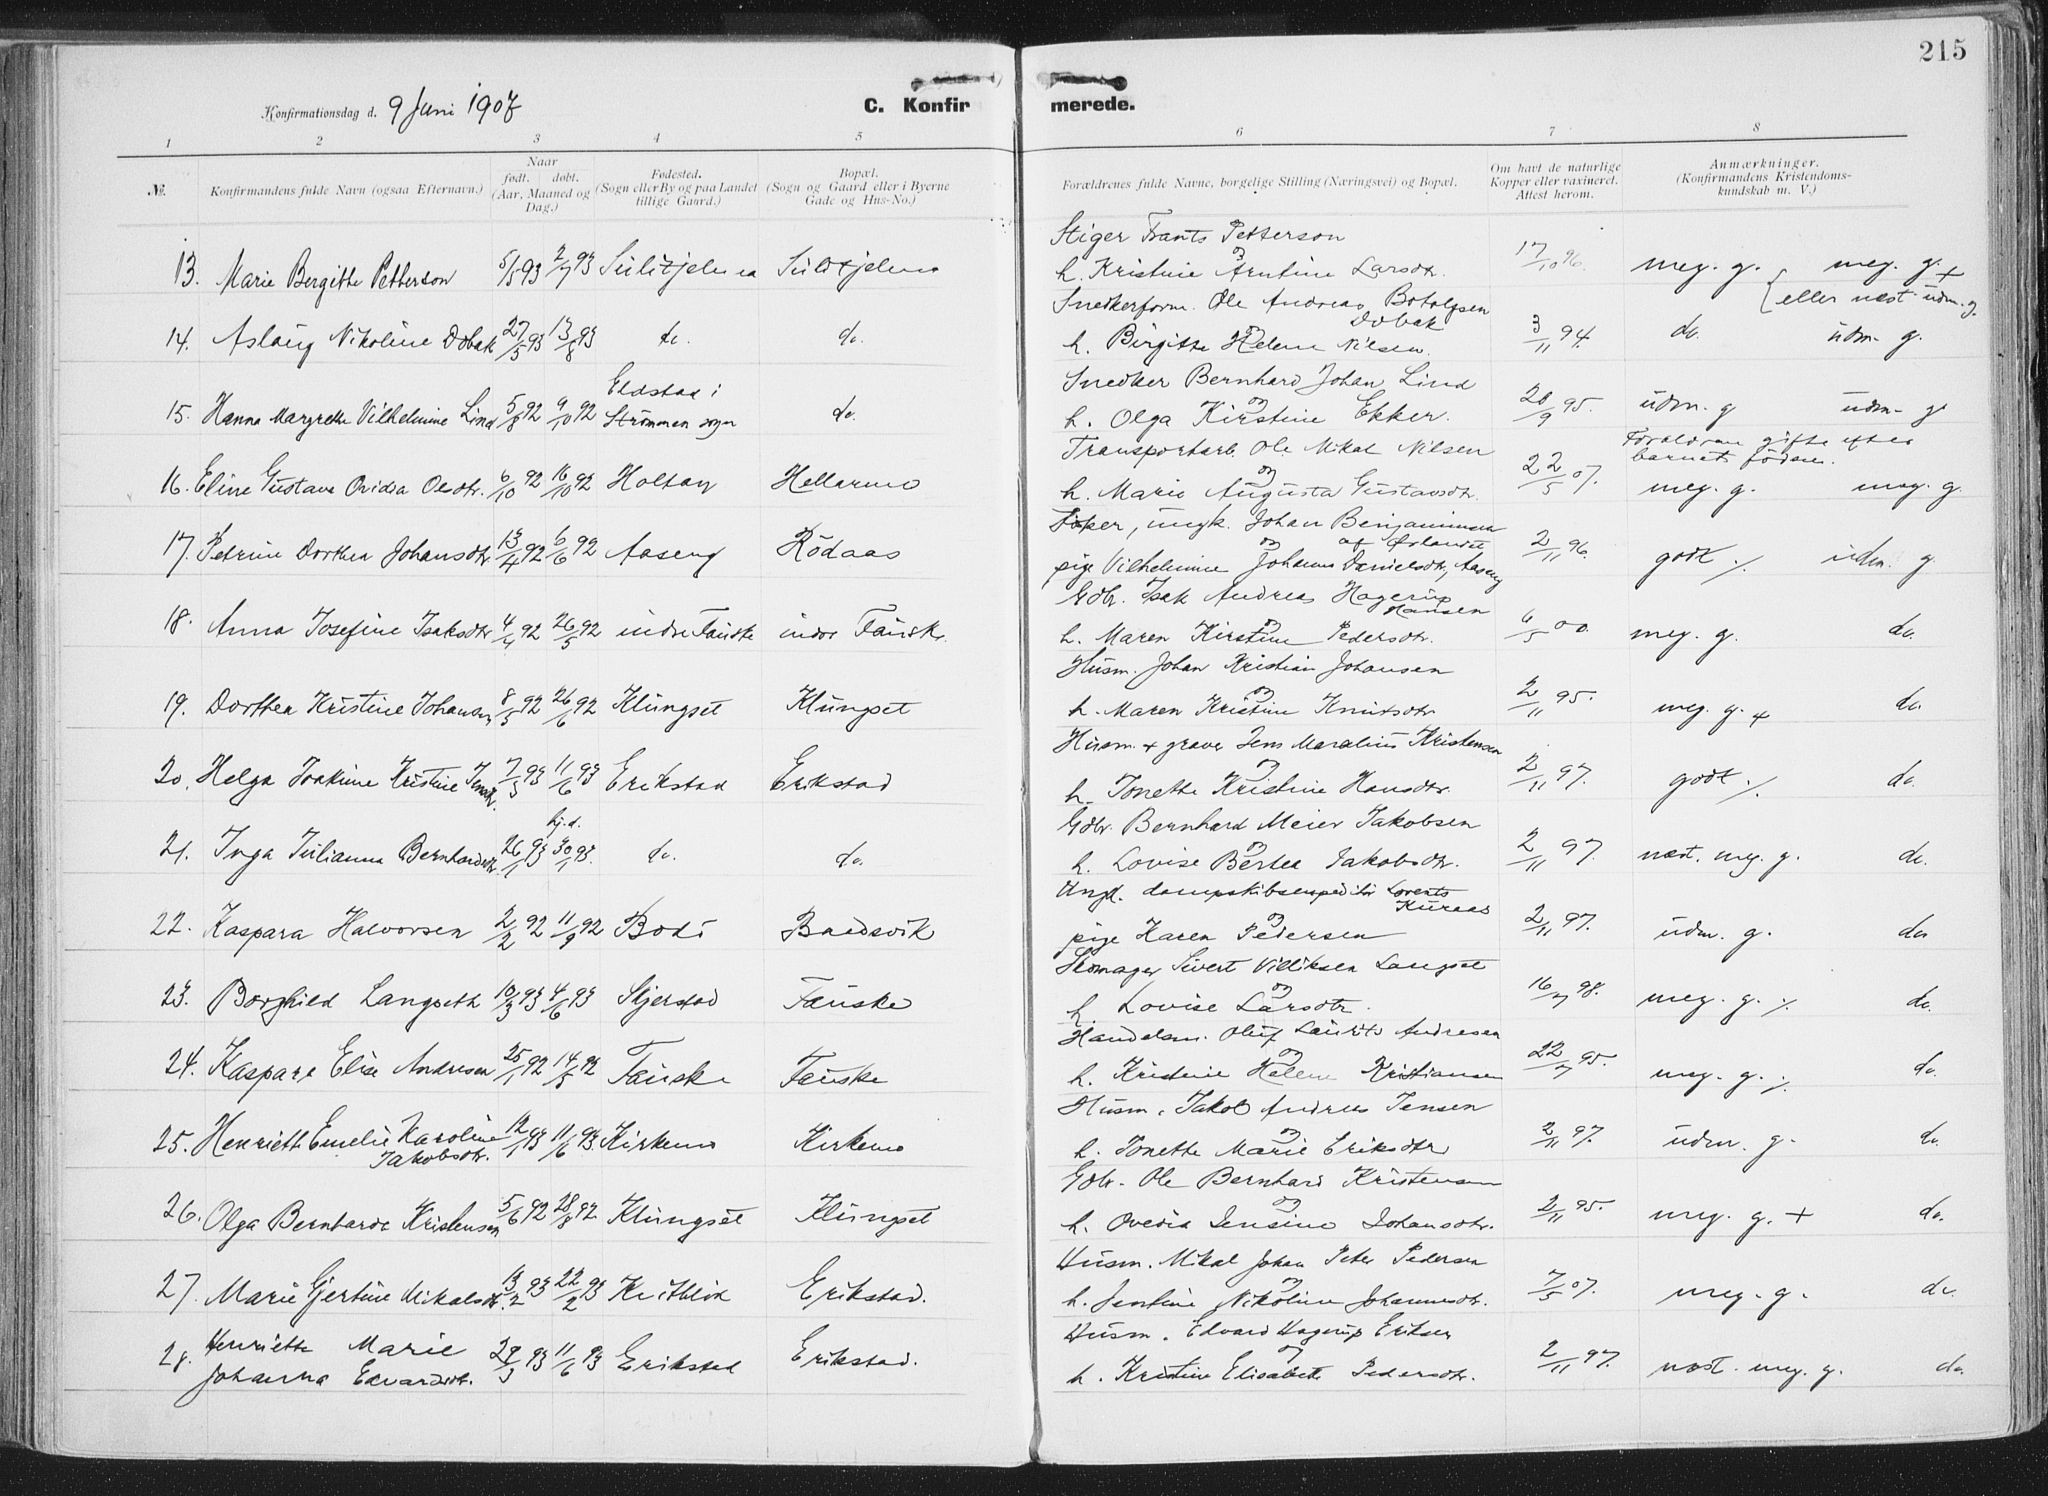 215
Konfirmationsdag d. 9 Juni 1907
C. Konfirmerede.
1 2 3 4 5 6 7 8
№.
Konfirmandens fulde Navn (ogsaa Efternavn.)
Naar født. døbt. (Aar, Maaned og Dag.)
Fødested. (Sogn eller By og paa Landet tillige Gaard.)
Bopæl. (Sogn og Gaard eller i Byerne Gade og Hus-No.)
Forældrenes fulde Navne, borgelige Stilling (Næringsvei) og Bopæl.
Om havt de naturlige Kopper eller vaxineret. Attest herom.
Anmærkninger. (Konfirmandens Kristendomskundskab m. V.)
13. Marie Bergitte Petterson 5/5 93 2/7 93 Sulitjelma Sulitjelma Stiger Frants Petterson og h. Kristine Arntine Larsdtr. 17/10 96. meg. g. meg. g. + (eller næst udm. g.
14. Aslaug Nikoline Dobak 27/5 93 13/8 93 do. do. Snedkerform. Ole Andreas Botolfsen Dobak og h. Birgitte Helene Nilsen. 3/11 94. do. udm. g.
15. Hanna Margrethe Vilhelmine Lind 5/8 92 9/10 92 Eldstad i Strömmen sogn do. Snedker Bernhard Johan Lind og h. Olga Kirstine Ekker. 20/9 95. udm. g udm. g
16. Eline Gustava Ovidia Olsdtr. 6/10 92 16/10 92 Holtan Hellarmo Transportarb. Ole Mikal Nilsen og h. Marie Augusta Gustavsdtr. 22/5 07. Forældrene gifte efter barnets födsel. meg. g. meg. g
17. Petrine Dorthea Johansdtr. 13/4 92 6/6 92 Aaseng Rödaas Fisker, ungk. Johan Benjaminsen af Ørlandet og pige Vilhelmine Johanna Danielsdtr, Aaseng 2/11 96. godt ./. udm. g
18. Anna Josefine Isaksdtr 4/4 92 26/5 92 indre Fauske indre Fauske. Gdbr. Isak Andreas Hagerup Hansen og h. Maren Kirstine Pedersdtr. 6/5 00. meg. g. do.
19. Dorthea Kristine Johansen 8/5 92 26/6 92 Klungset Klungset Husm. Johan Kristian Johansen og h. Maren Kristine Knutsdtr. 2/11 95. meg. g. + do.
20. Helga Joakime Kristine Jensdtr. 7/3 93 11/6 93 Erikstad Erikstad Husm. + graver Jens Maralius Kristensen og h. Jonette Kristine Hansdtr. 2/11 97. godt ./. do.
21. Inga Julianna Bernhardsdtr. 26/1 93 hj.d. 30/1 93. do. do. Gdbr. Bernhard Meier Jakobsen og h. Lovise Bertea Jakobsdtr. 2/11 97. næst. meg. g. do.
22. Kaspara Halvorsen 2/2 92 11/9 92 Bodö Baadsvik Ungk. dampskibsexpeditör Lorents Kuraas og pige Karen Pedersen 2/11 97. udm. g. do
23. Borghild Langseth 10/3 93 4/6 93 Skjerstad Fauske Skomager Sivert Villiksen Langset og h. Lovise Larsdtr. 16/7 98. meg. g. ./. do.
24. Kaspara Elise Andresen 25/1 92 14/5 92 Fauske Fauske Handelsm. Oluf Laurits Andresen og h. Kristine Helene Kristiansen 22/7 95. meg. g. ./. do.
25. Henriette Emelie Karoline Jakobsdtr. 12/1 93 11/6 93 Kirkemo Kirkemo Husm. Jakob Andreas Jensen og h. Tonette Marie Eriksdtr 2/11 97. udm. g. do.
26. Olga Bernharda Kristensen 5/6 92 28/8 92 Klungset Klungset Gdbr. Ole Bernhard Kristensen og h. Ovedia Jensine Johansdtr. 2/11 95. meg. g. + do.
27. Marie Gjertine Mikalsdtr. 13/2 93 22/2 93 Erikstad. Husm. Mikal Johan Peter Pedersen og h. Jentine Nikoline Johannesdtr. 7/5 07. meg. g. do.
28. Henriette Marie Johanna Edvardsdtr. 29/3 93 11/6 93 Erikstad Erikstad. Husm. Edvard Hagerup Eriksen og h. Kristine Elisabeth Pedersdtr. 2/11 97. næst. meg. g. do.